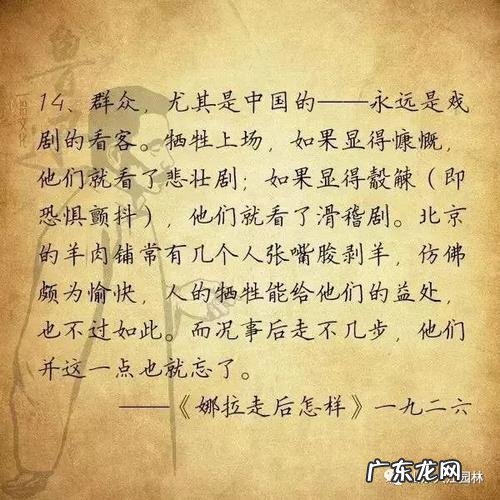 14、群众，尤其是中国的——永远是戏
剧的看客。牺牲上场，如果显得慷慨，
他们就看了悲壮剧；如果显得觳觫（即
恐惧颤抖），他们就看了滑稽剧。北京
的羊肉铺常有几个人张嘴胶剥羊，仿佛
颇为愉快，人的牺牲能给他们的益处，
也不过如此。而况事后走不几步，他们
并这一点也就忘了。
——《娜拉走后怎样》一九二六
园林
广东龙网